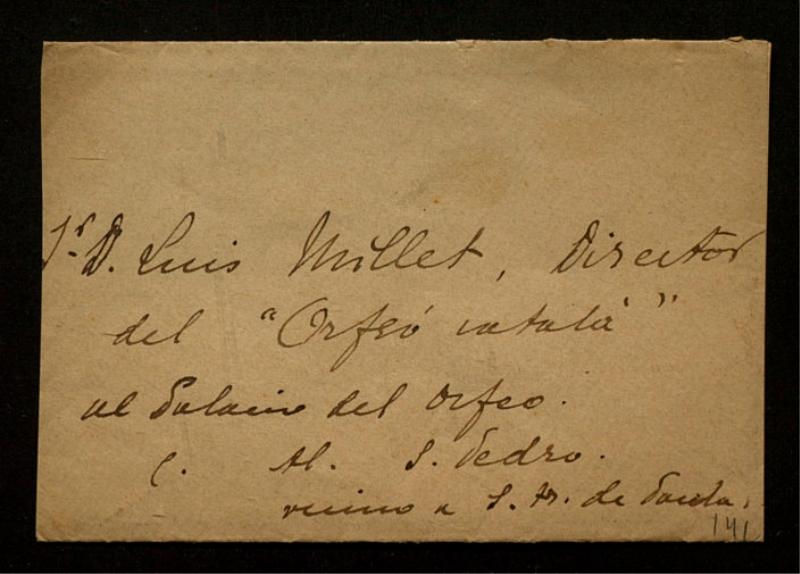 Sr. D. Luis Millet, Director
del "Orfeó català"
al Palacio del Orfeo.
C. Al. S. Pedro.
vecino a S. Fr. de Paula.
141